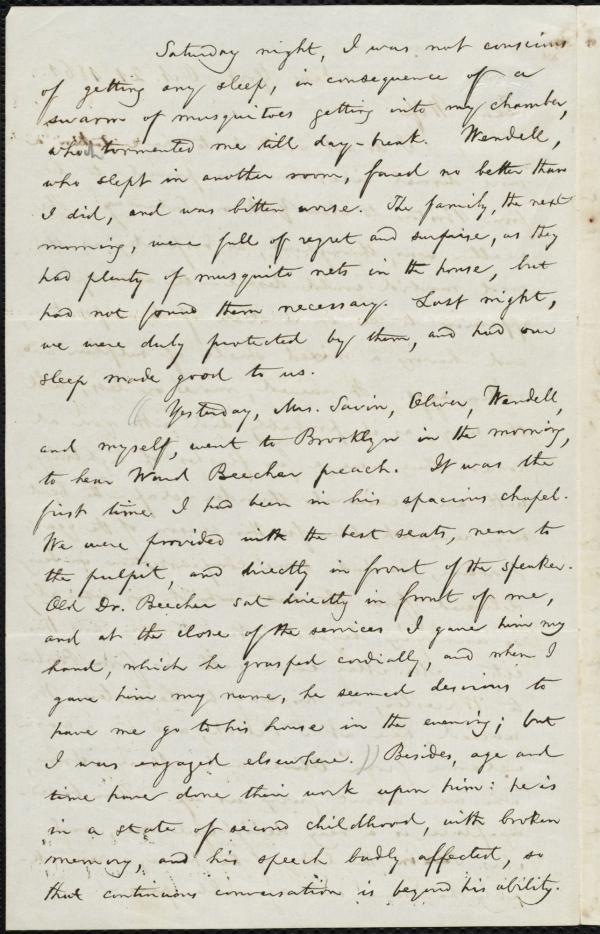 Saturday night, I was not conscious
of getting any sleep, in consequence of a
swarm of musquitoes getting into my chamber,
who tormented me till day-break. Wendell,
who slept in another room, fared no better than
I did, and was bitten worse. The family, the next
morning, were full of regret and surprise, as they
had plenty of musquito nets in the house, but
had not found them necessary. Last night,
we were duly protected by them, and had our
sleep made good to us.
Yesterday, Mrs. Savin, Oliver, Wendell,
and myself, went to Brooklyn in the morning,
to hear Ward Beecher preach. It was the
first time I had been in his spacious chapel.
We were provided with the best seats, near to
the pulpit, and directly in front of the speaker.
Old Dr. Beecher sat directly in front of me,
and at the close of the services I gave him my
hand, which he grasped cordially, and when I
gave him my name, he seemed desirous to
have me go to his house in the evening; but
I was engaged elsewhere. Besides, age and
time have done their work upon him: he is
in a state of second childhood, with broken
memory, and his speech badly affected, so
that continuous conversation is beyond his ability.